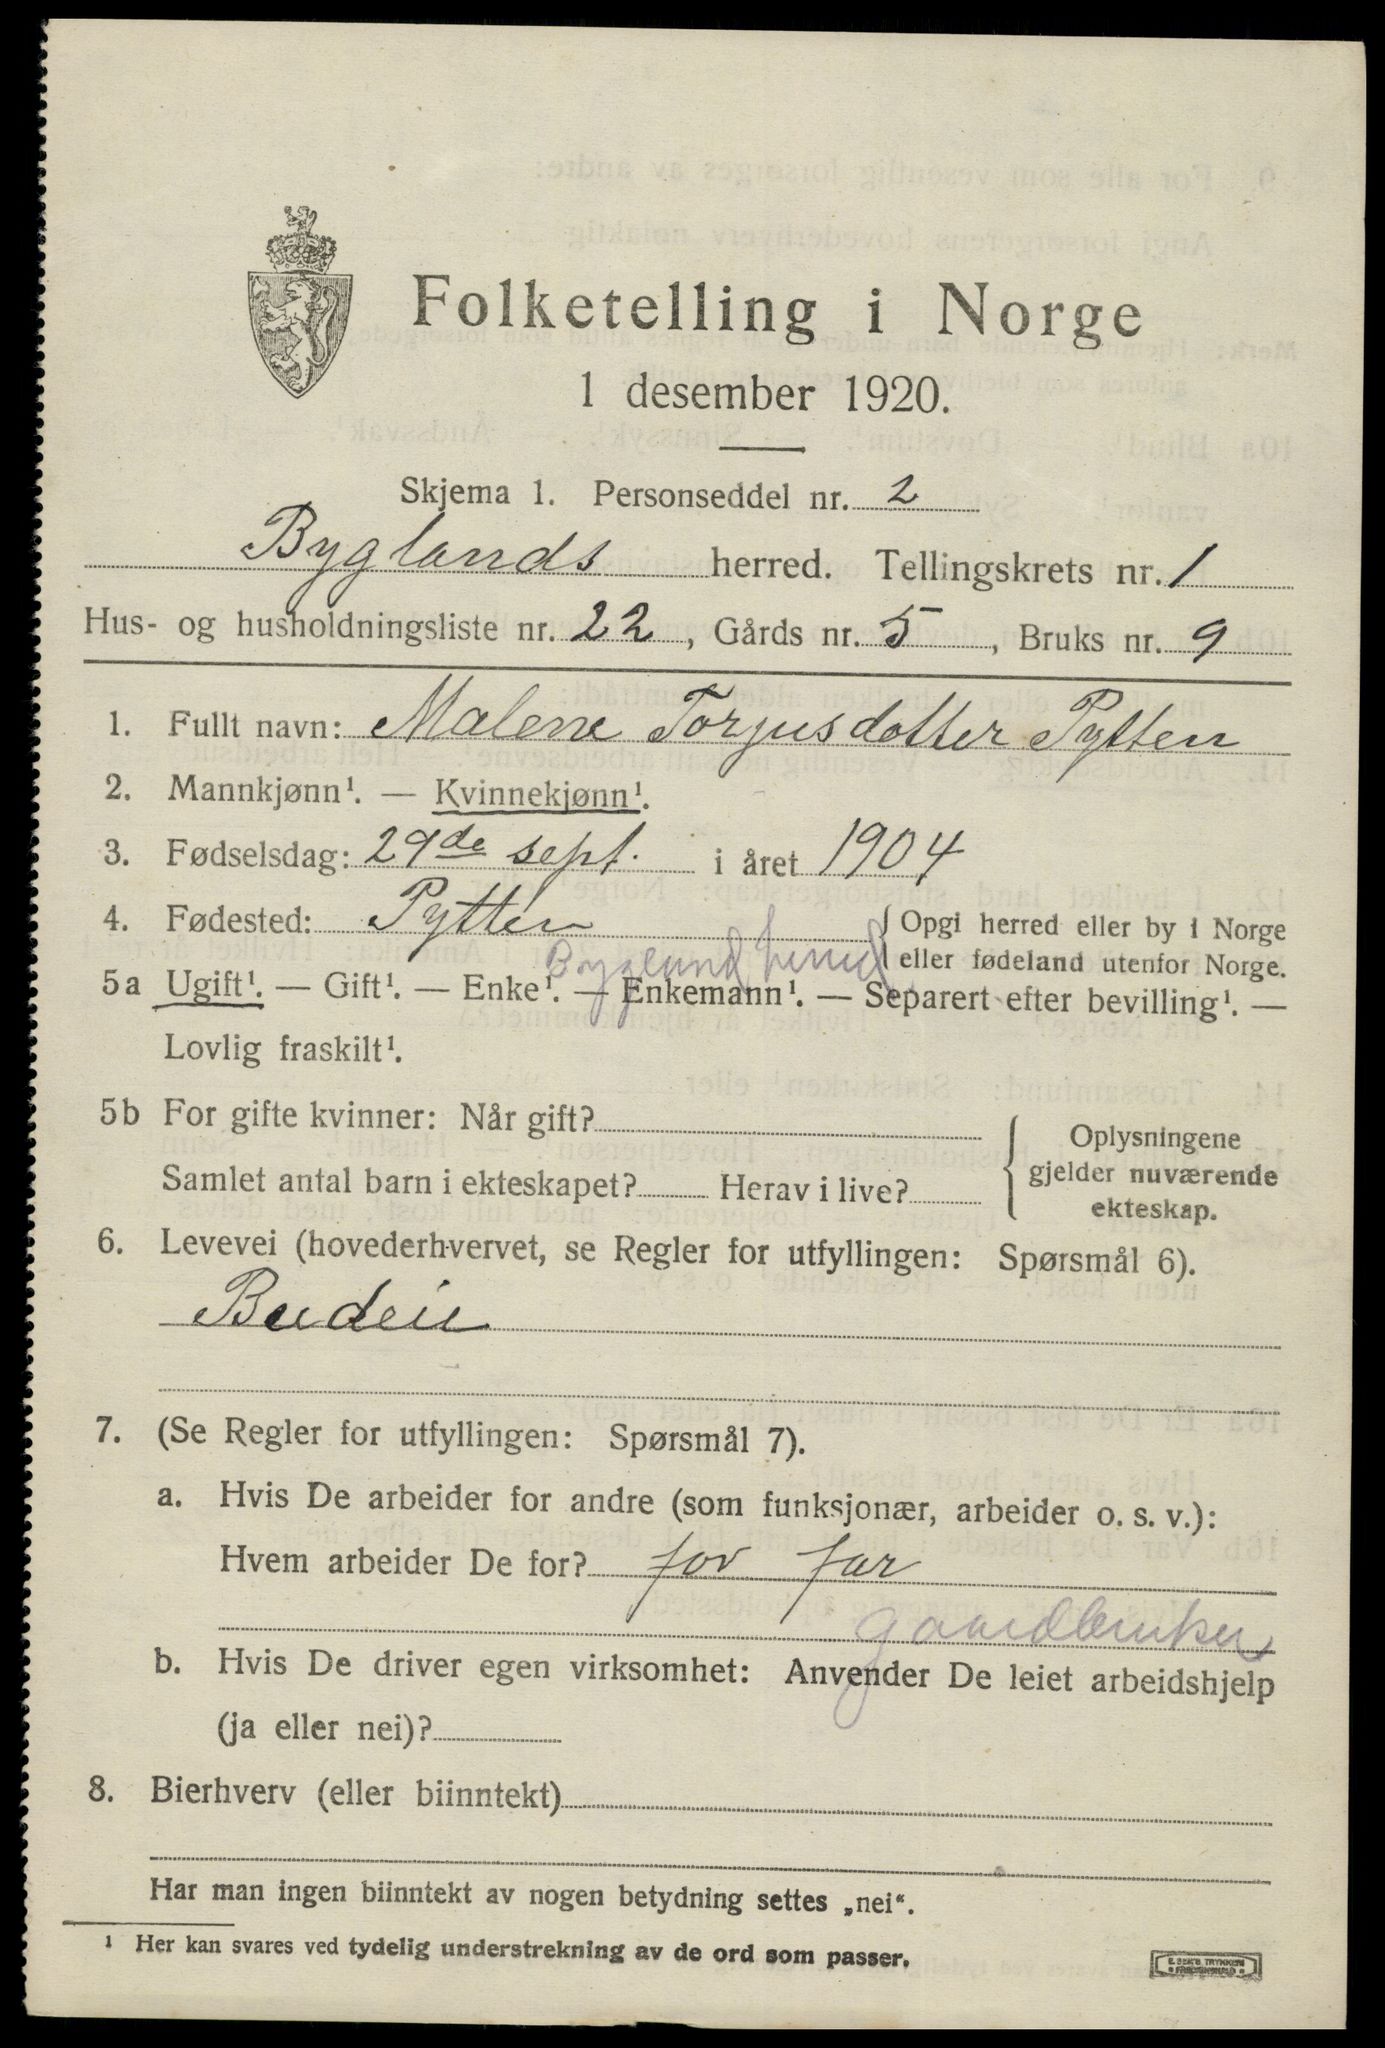 Folketelling i Norge
1 desember 1920.
Skjema 1. Personseddel nr. 2
Byglands herred. Tellingskrets nr. 1
Hus- og husholdningsliste nr. 22, Gårds nr. 5, Bruks nr. 9
1. Fullt navn: Malene Torjusdotter Pytten
2. Mannkjønn¹. — Kvinnekjønn¹.
3. Fødselsdag: 29de sept. i året 1904
4. Fødested: Pytten Opgi herred eller by i Norge
Bygland herred eller fødeland utenfor Norge.
5a Ugift¹. — Gift¹. — Enke¹. — Enkemann¹. — Separert efter bevilling¹. —
Lovlig fraskilt¹.
5b For gifte kvinner: Når gift?
Samlet antal barn i ekteskapet? Herav i live?
Oplysningene
gjelder nuværende
ekteskap.
6. Levevei (hovederhvervet, se Regler for utfyllingen: Spørsmål 6).
Budeie
7. (Se Regler for utfyllingen: Spørsmål 7).
a. Hvis De arbeider for andre (som funksjonær, arbeider o. s. v.):
Hvem arbeider De for? for far
gaardbruker
b. Hvis De driver egen virksomhet: Anvender De leiet arbeidshjelp
(ja eller nei)?
8. Bierhverv (eller biinntekt)
Har man ingen biinntekt av nogen betydning settes „nei“.
¹ Her kan svares ved tydelig understrekning av de ord som passer.